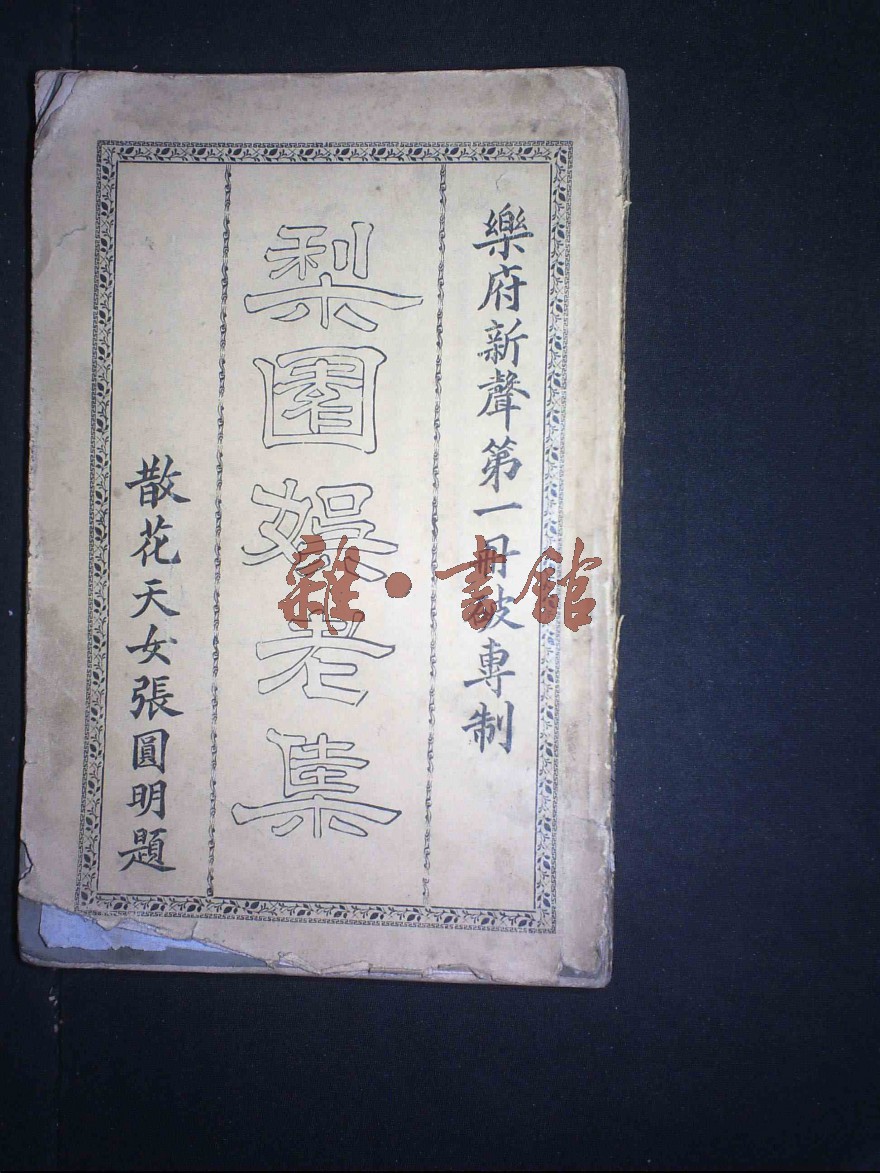 樂府新聲第一冊破專制
梨園娛老集
散花天女張圓明題
雜·書館